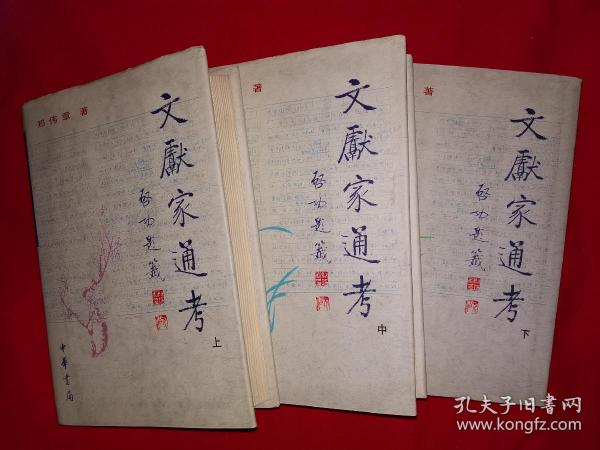 郑伟章 著
文獻家通考
啓功題籤
上
中華書局
著
文獻家通考
啓功題籤
中
著
文獻家通考
啓功題籤
下
孔夫子旧書网
www.kongfz.com